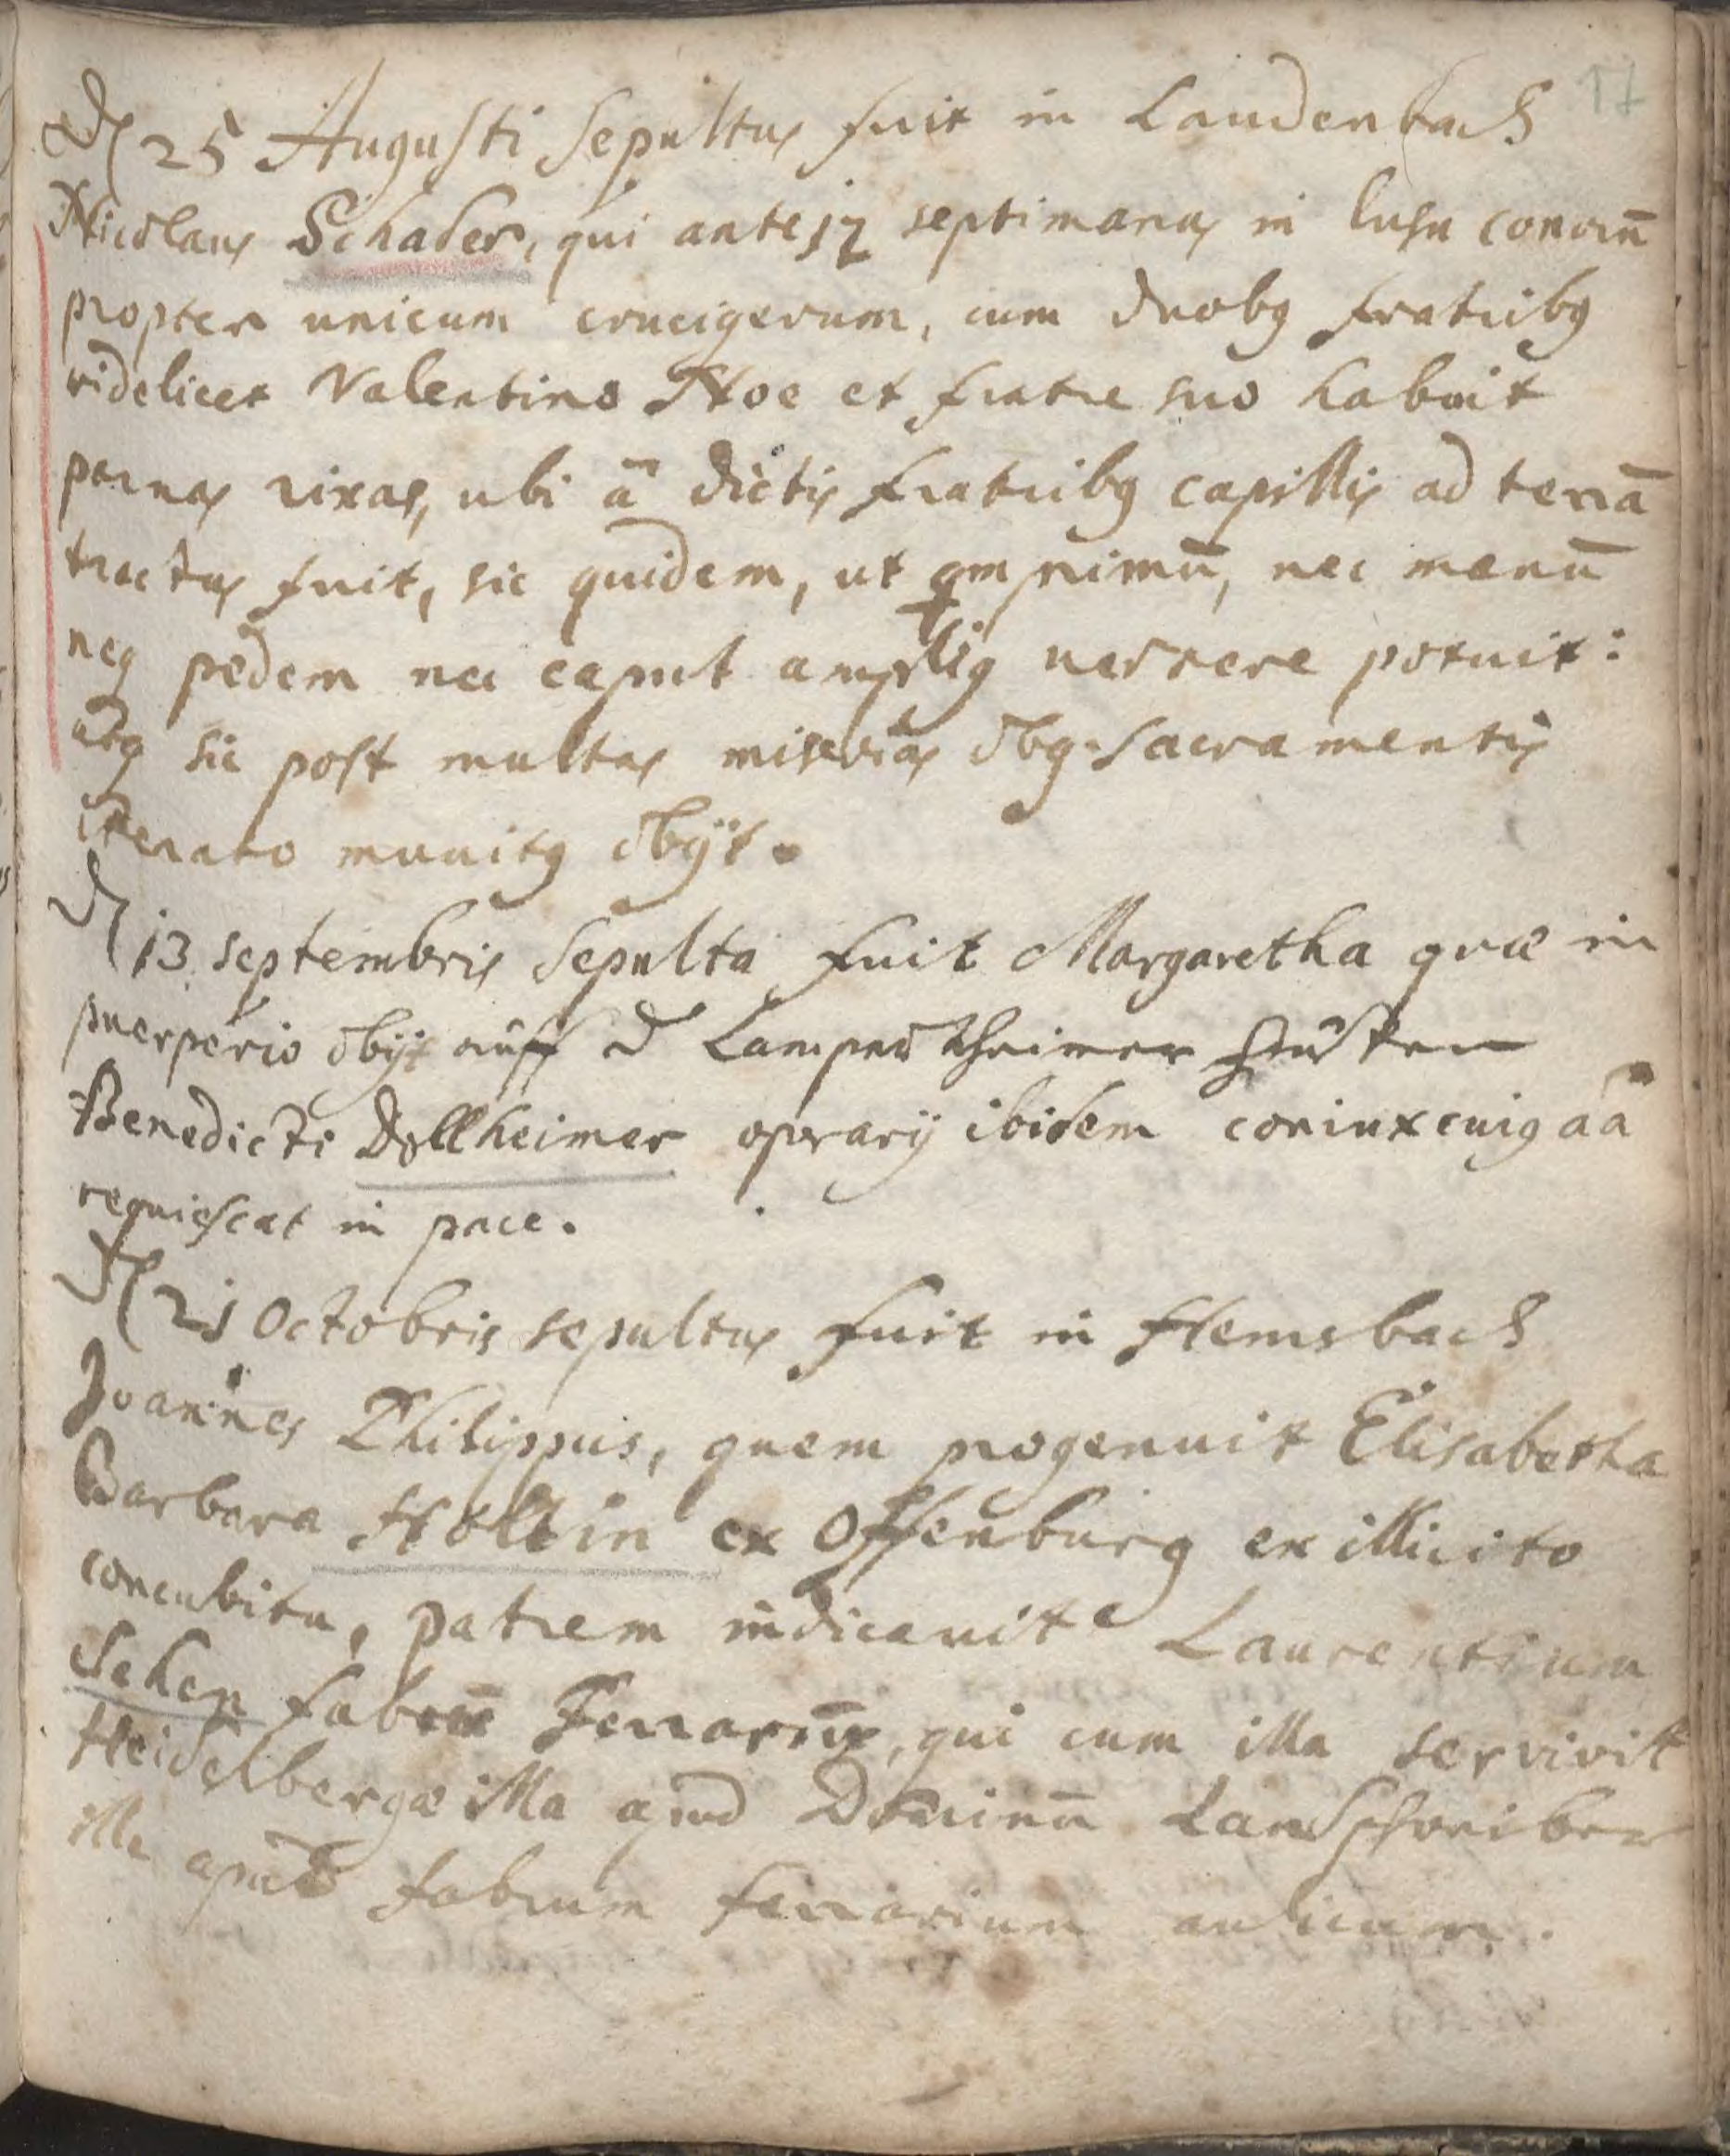 17
D 25 Augusti Sepultus fuit in Laudenbach
Nicolaus Schader, qui ante 17 septimanas in lusu conorū
propter unicum crucigerum, cum duobg fratribg
videlicet Valentino Noe et fratre suo habuit
parvas rixas, ubi ā dictis fratribg capillis ad terrā
tractus fuit, sic quidem, ut nec manū
neq pedem nec caput amplig potuit:
atq sic post multas miserias obg. Sacramentis
iterato munitg obijt.
D 13 septembris Sepulta fuit Margaretha quæ in
puerperio obijt auff d Lampertheimer Hütten
Benedicti Dollheimer operarij ibidem coniux cuig aā
requiescat in pace.
D 21 Octobris sepultus fuit in Hemsbach
Joannes Philippus, quem progenuit Elisabetha
Barbara Höltin ex Offenburg ex illicito
concubitu, patrem indicavit Laurentium
Schen fabrū Ferrariū, qui cum illa servivit
Heidelbergæ illa apud Dominū LandSchreiber
ille apud fabrum ferrarium aulicum.